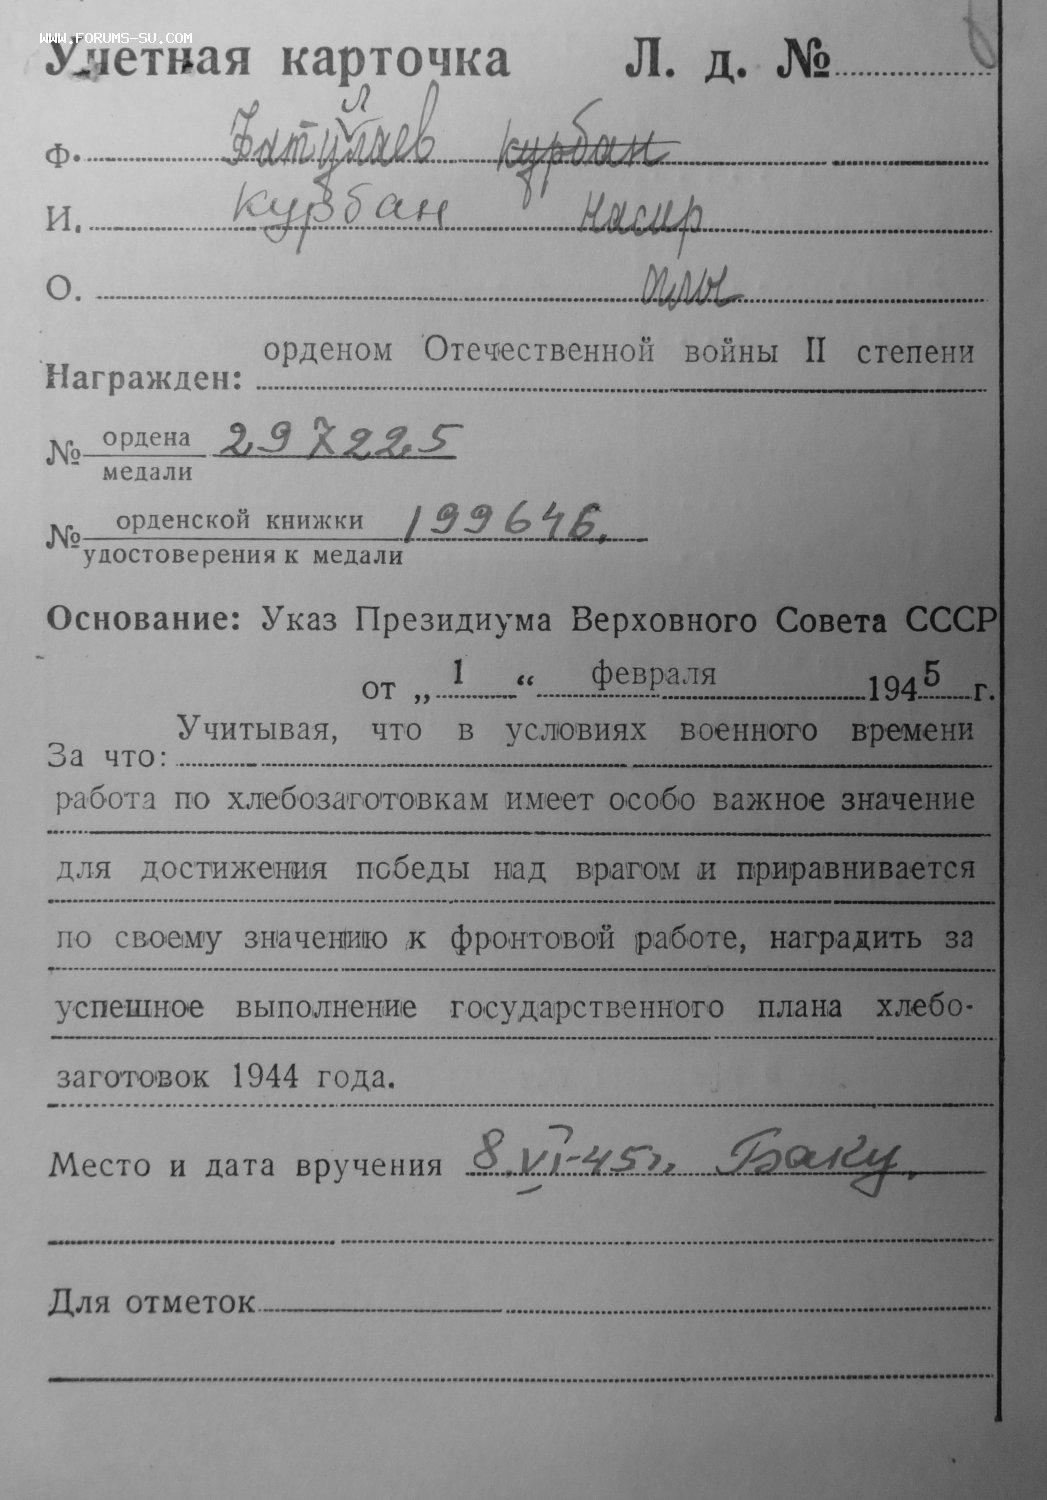 WWW.FORUMS-SU.COM
Учетная карточка Л. д. №
Ф. Батуллаев Курбан
И. Курбан Насир
О. оглы
орденом Отечественной войны II степени
Награжден:
№ ордена 297225
медали
№ орденской книжки 199646.
удостоверения к медали
Основание: Указ Президиума Верховного Совета СССР
от „ 1 “ февраля 1945 г.
Учитывая, что в условиях военного времени
За что:
работа по хлебозаготовкам имеет особо важное значение
для достижения победы над врагом и приравнивается
по своему значению к фронтовой работе, наградить за
успешное выполнение государственного плана хлебо-
заготовок 1944 года.
Место и дата вручения 8.VI-45 г. Баку.
Для отметок